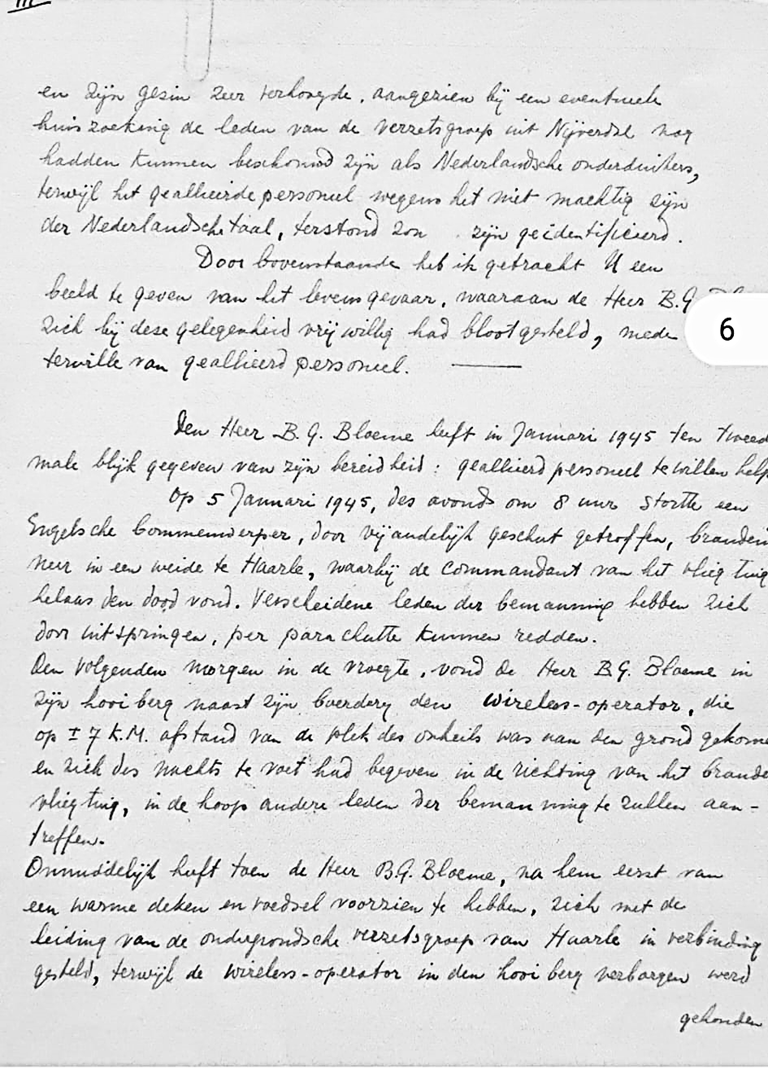 III
en zijn gezin zeer verhoogde, aangezien bij een eventueele
huiszoeking de leden van de verzetsgroep uit Nijverdal nog
hadden kunnen beschouwd zijn als Nederlandsche onderduikers,
terwijl het geallieerde personeel wegens het niet machtig zijn
der Nederlandsche taal, terstond zou zijn geïdentificeerd.
Door bovenstaande heb ik getracht U een
beeld te geven van het levensgevaar, waaraan de Heer B.G.
zich bij deze gelegenheid vrijwillig had blootgesteld, mede
6
terwille van geallieerd personeel. ———
Den Heer B.G. Bloeme heeft in Januari 1945 ten tweed
male blijk gegeven van zijn bereidheid: geallieerd personeel te willen help
Op 5 Januari 1945, des avonds om 8 uur stortte een
Engelsche bommenwerper, door vijandelijk geschut getroffen, branden
neer in een weide te Haarle, waarbij de commandant van het vliegtuig
helaas den dood vond. Verscheidene leden der bemanning hebben zich
door uitspringen, per parachutte kunnen redden.
Den volgenden morgen in de vroegte, vond de Heer B.G. Bloeme in
zijn hooiberg naast zijn boerdery den wireless-operator, die
op ± 7 K.M. afstand van de plek des onheils was aan den grond gekome
en zich des nachts te voet had begeven in de richting van het brande
vliegtuig, in de hoop andere leden der bemanning te zullen aan-
treffen.
Onmiddelijk heeft toen de Heer B.G. Bloeme, na hem eerst van
een warme deken en voedsel voorzien te hebben, zich met de
leiding van de ondergrondsche verzetsgroep van Haarle in verbinding
gesteld, terwijl de wireless-operator in den hooiberg verborgen werd
gehouden